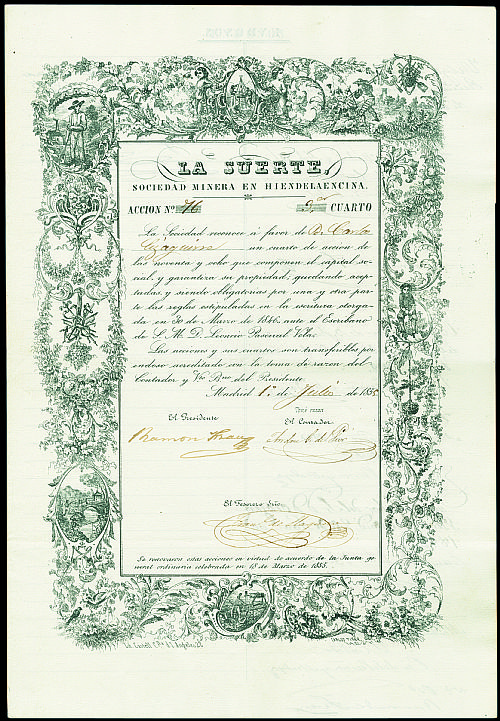 LA SUERTE,
SOCIEDAD MINERA EN HIENDELAENCINA.
ACCION Nº 76 3er CUARTO
La Sociedad reconoce á favor de Dn Carlos
un cuarto de accion de
las noventa y ocho que componen el capital so-
cial, y garantiza su propiedad, quedando acep-
tadas y siendo obligatorias por una y otra par-
te las reglas estipuladas en la escritura otorga-
da en 30 de Marzo de 1846 ante el Escribano
de S. M. D. Leoncio Pascual Vila.
Las acciones y sus cuartos son transferibles por
endoso acreditado con la toma de razon del
Contador y Vto Bno del Presidente.
Madrid 1º de Julio de 1855
El Presidente
Tomé razon
El Contador
Ramon
El Tesorero Srio.
Se renovaron estas acciones en virtud de acuerdo de la Junta ge-
neral ordinaria celebrada en 18 de Marzo de 1855.